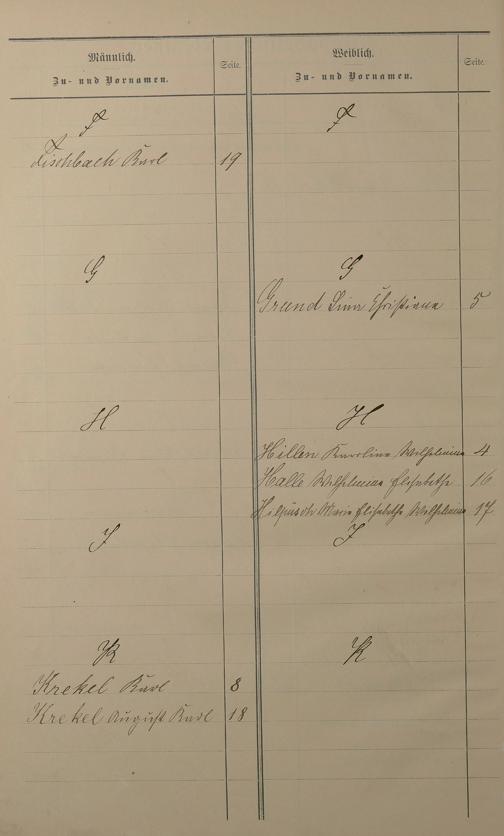 Männlich.
Zu- und Vornamen.
Seite.
F
Fischbach Karl 19
G
H
J
K
Krekel Karl 8
Krekel August Karl 18
Weiblich.
Zu- und Vornamen.
Seite.
F
G
Grund Lina Christiane 5
H
Hillen Karoline Wilhelmine 4
Halle Wilhelmine Elisabethe 16
Hilpüsch Marie Elisabethe Wilhelmine 17
J
K